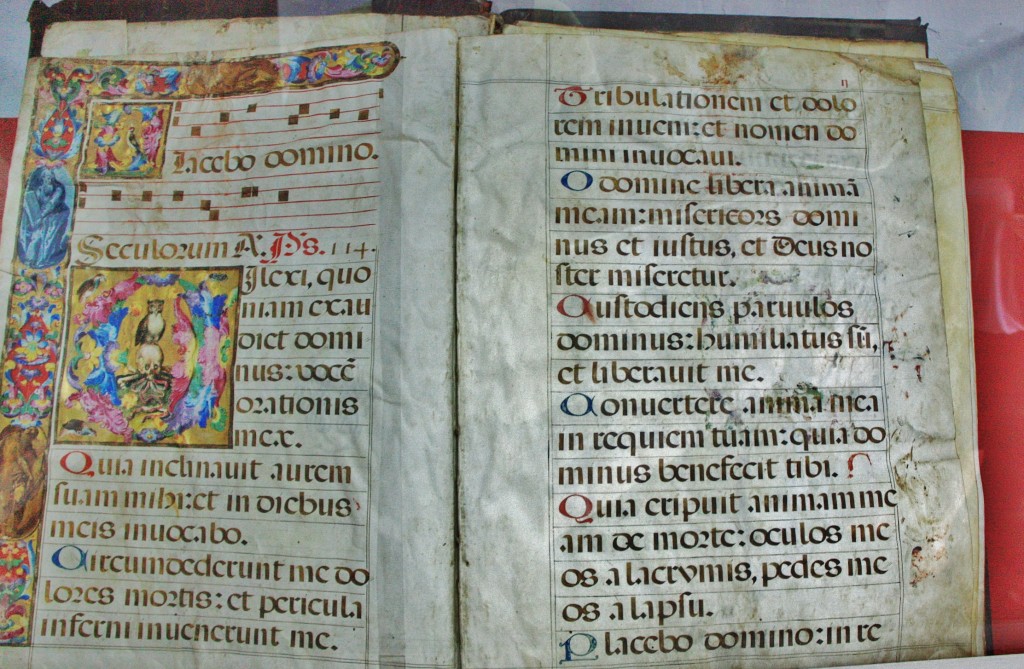 Placebo domino.
Seculorum A. Ps. 114.
Dilexi, quo
niam exau
diet domi
nus: vocẽ
orationis
meæ.
Quia inclinauit aurem
suam mihi: et in diebus
meis inuocabo.
Circumdederunt me do
lores mortis: et pericula
inferni inuenerunt me.
Tribulationem et dolo
rem inueni: et nomen do
mini inuocaui.
O domine libera animã
meam: misericors domi
nus et iustus, et Deus no
ster miseretur.
Custodiens paruulos
dominus: humiliatus sũ,
et liberauit me.
Conuertere anima mea
in requiem tuam: quia do
minus benefecit tibi.
Quia eripuit animam me
am de morte: oculos me
os a lacrymis, pedes me
os a lapsu.
Placebo domino: in re